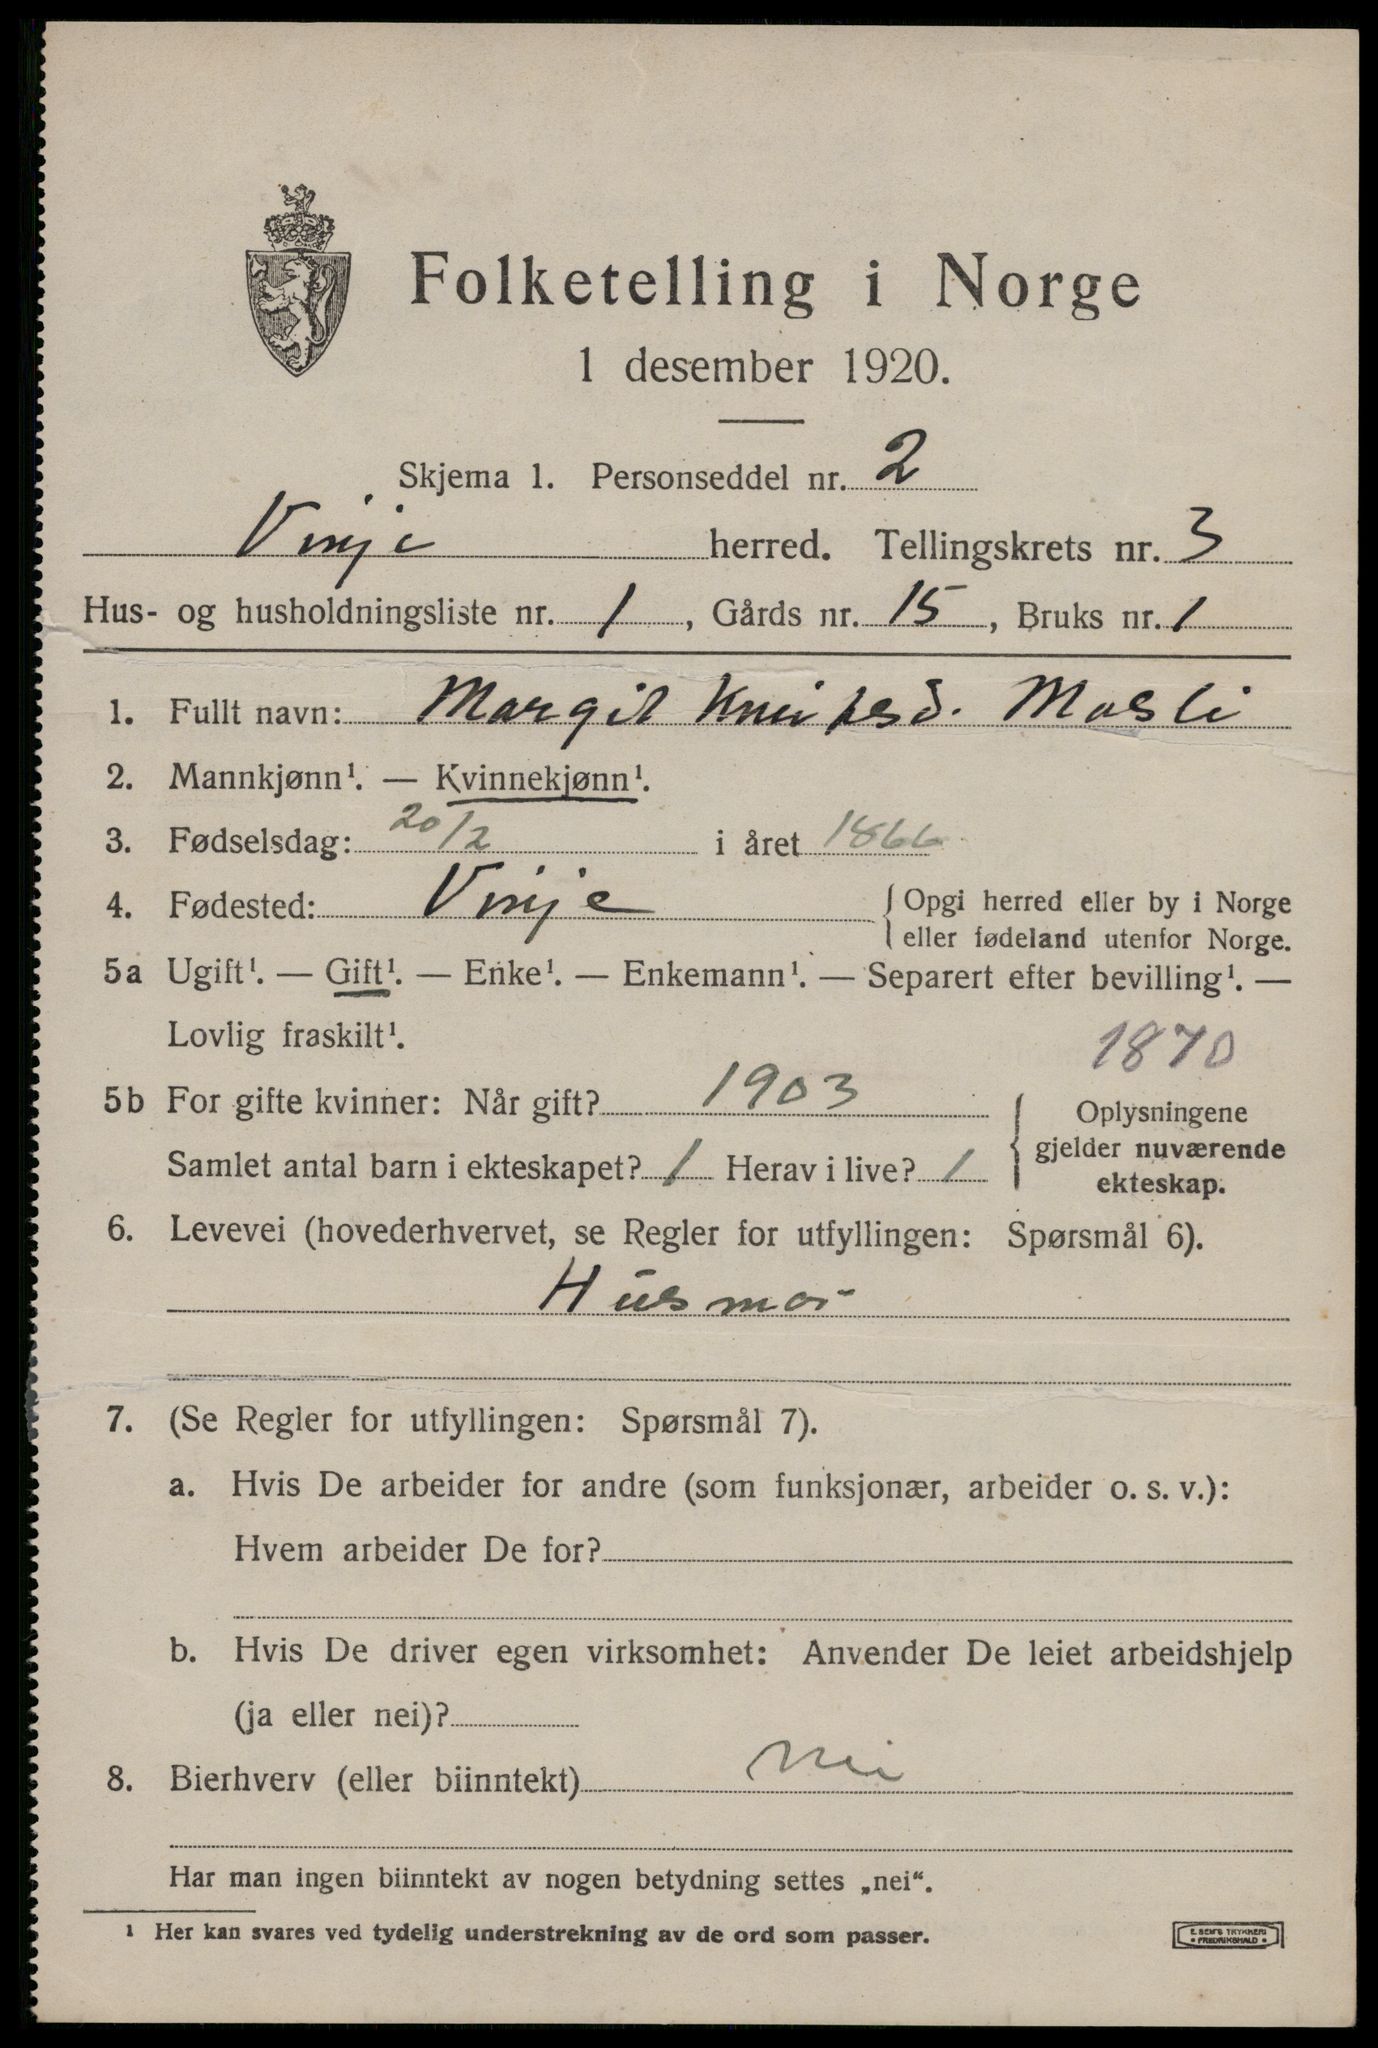 Folketelling i Norge
1 desember 1920.
Skjema 1. Personseddel nr. 2
Vinje herred. Tellingskrets nr. 3
Hus- og husholdningsliste nr. 1, Gårds nr. 15, Bruks nr. 1
1. Fullt navn: Margit Knutsd. Mosli
2. Mannkjønn¹. — Kvinnekjønn¹.
3. Fødselsdag: 20/2 i året 1866
4. Fødested: Vinje { Opgi herred eller by i Norge
eller fødeland utenfor Norge.
5a Ugift¹. — Gift¹. — Enke¹. — Enkemann¹. — Separert efter bevilling¹. —
Lovlig fraskilt¹.
1870
5b For gifte kvinner: Når gift? 1903
Samlet antal barn i ekteskapet? 1 Herav i live? 1
Oplysningene
gjelder nuværende
ekteskap.
6. Levevei (hovederhvervet, se Regler for utfyllingen: Spørsmål 6).
Husmor
7. (Se Regler for utfyllingen: Spørsmål 7).
a. Hvis De arbeider for andre (som funksjonær, arbeider o. s. v.):
Hvem arbeider De for?
b. Hvis De driver egen virksomhet: Anvender De leiet arbeidshjelp
(ja eller nei)?
8. Bierhverv (eller biinntekt) nei
Har man ingen biinntekt av nogen betydning settes „nei“.
¹ Her kan svares ved tydelig understrekning av de ord som passer.
E. SEM'S TRYKKERI
• FREDRIKSHALD •